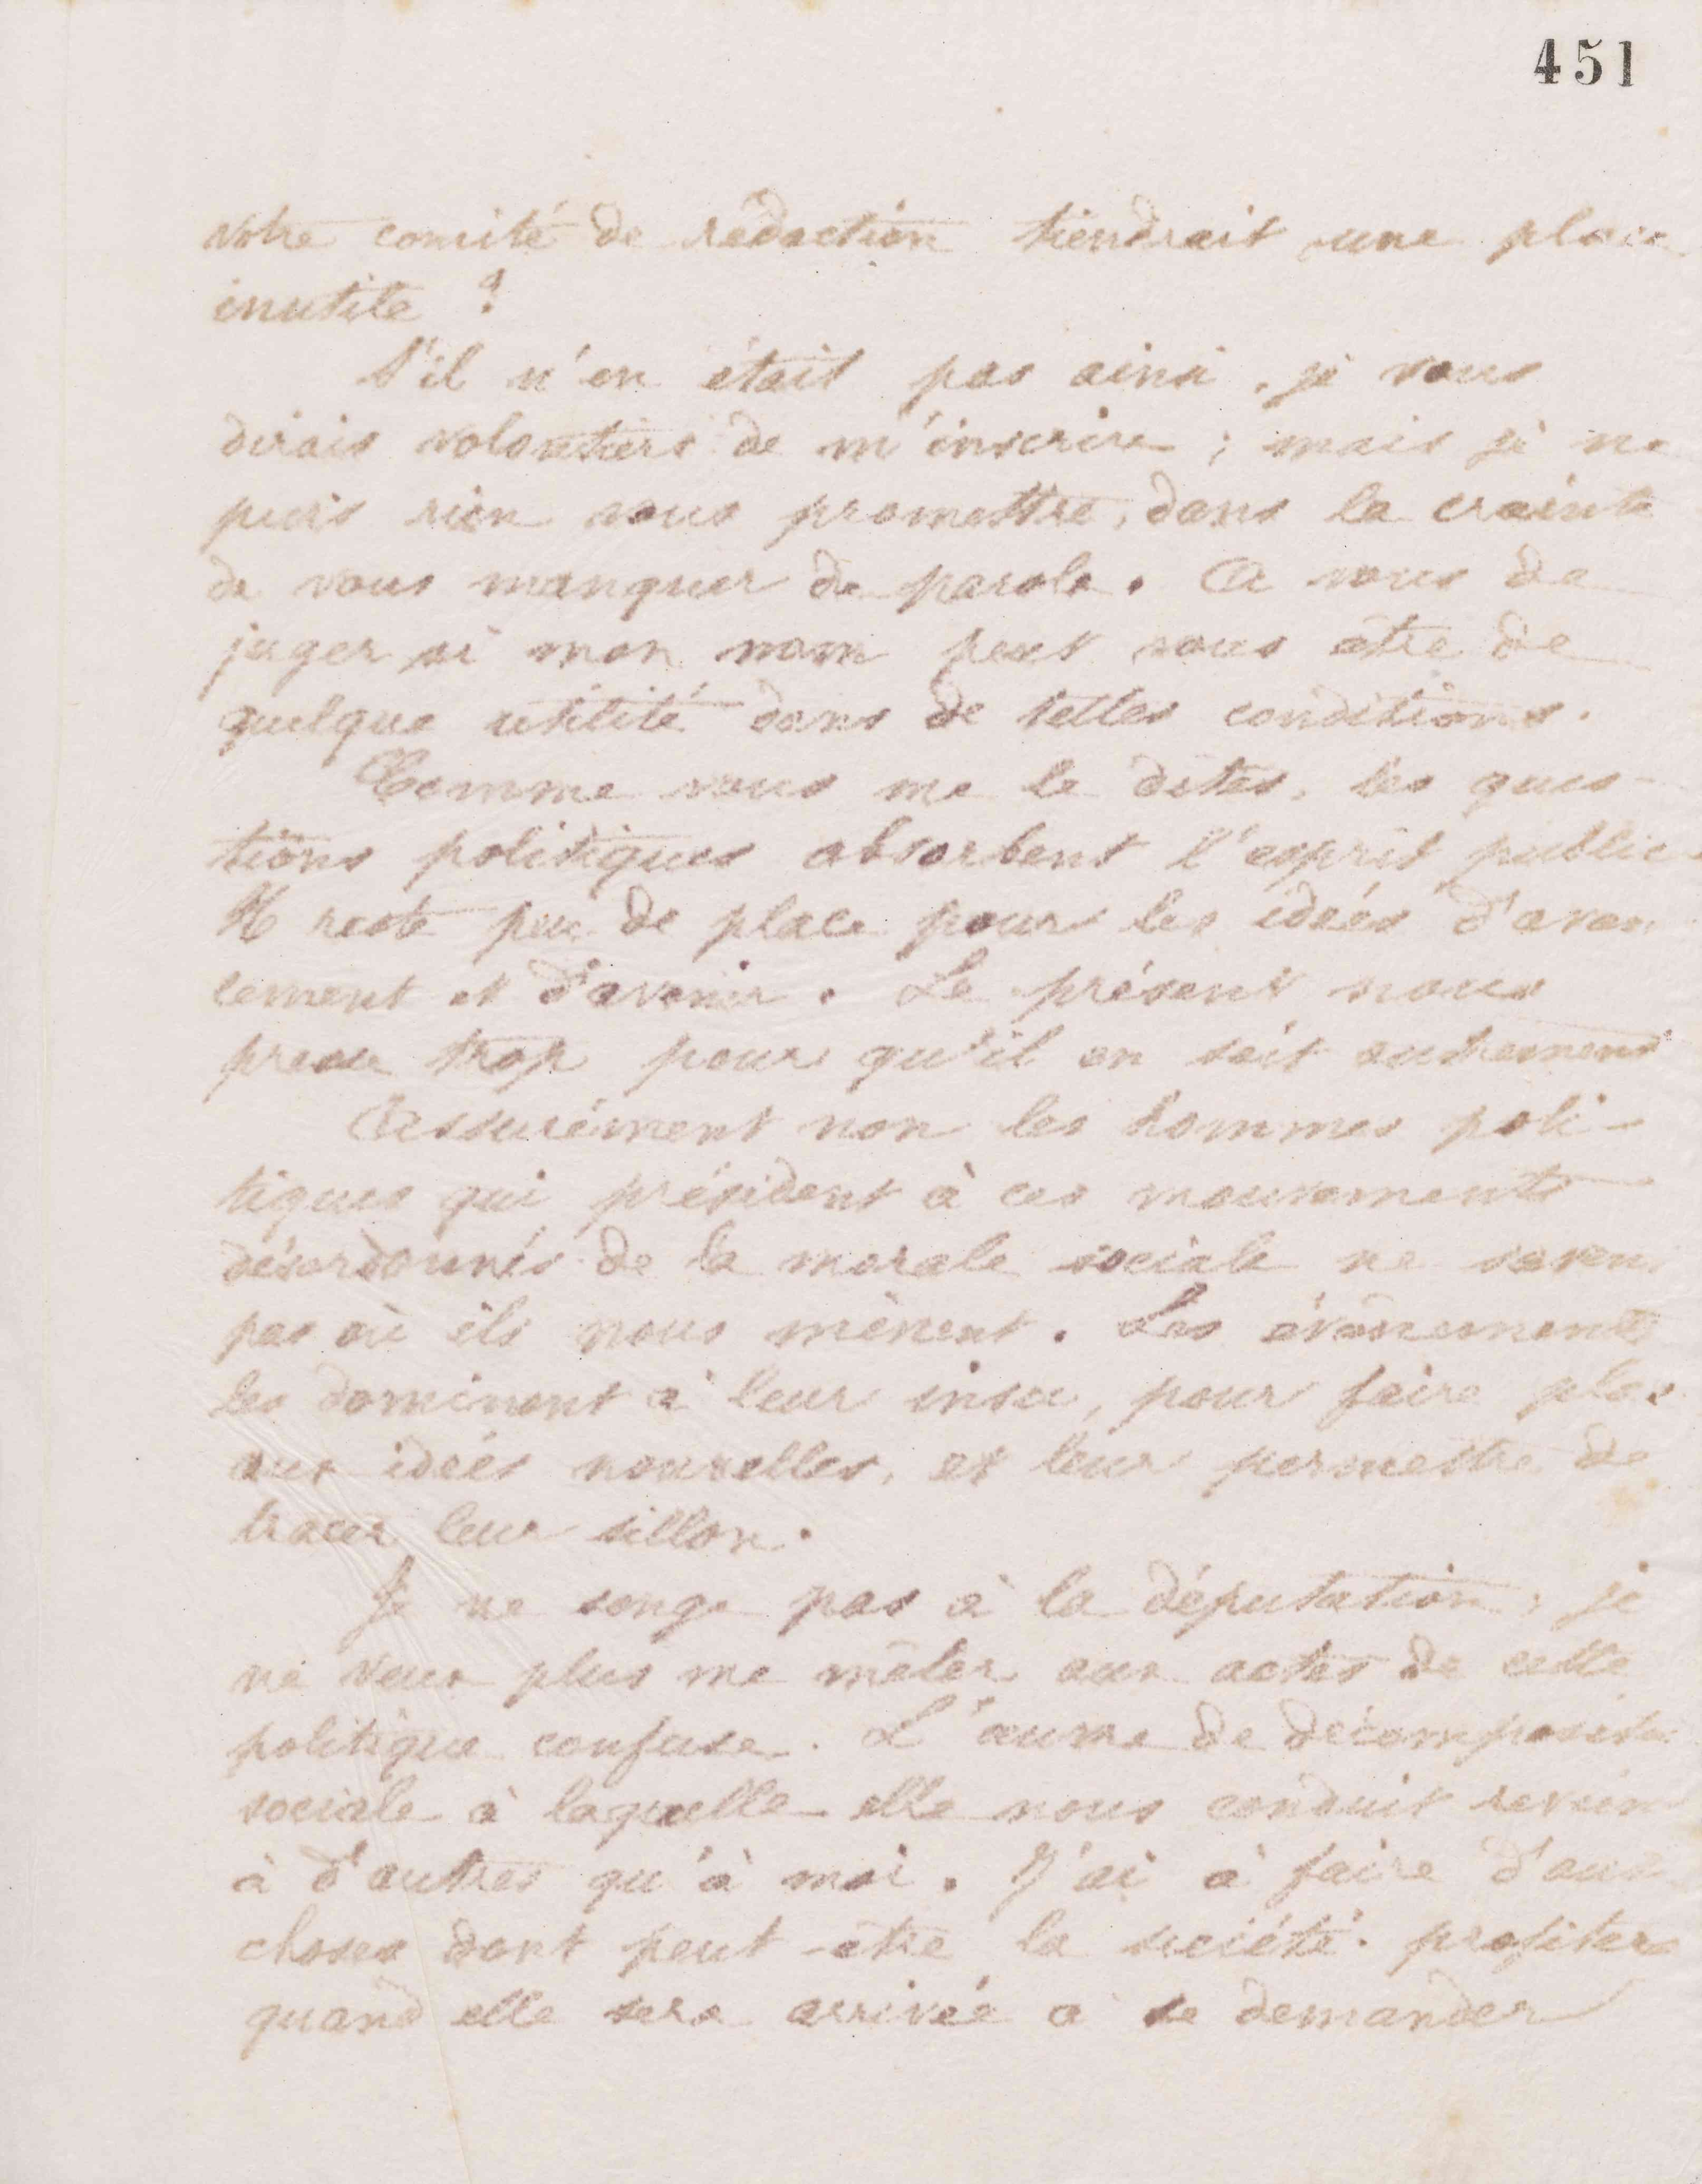 451
votre comité de rédaction tiendrait une place
inutile ?
S'il n'en était pas ainsi, je vous
dirais volontiers de m'inscrire ; mais je ne
puis rien vous promettre, dans la crainte
de vous manquer de parole. A vous de
juger si mon nom peut vous être de
quelque utilité dans de telles conditions.
Comme vous me le dites, les ques-
tions politiques absorbent l'esprit public.
Il reste peu de place pour les idées d'avan
cement et d'avenir. Le présent nous
presse trop pour qu'il en soit autrement
Assurément non les hommes poli-
tiques qui président à ces mouvements
désordonnés de la morale sociale ne saven
pas où ils nous mènent. Les évènements
les dominent à leur insu, pour faire plac
aux idées nouvelles, et leur permettre de
tracer leur sillon.
Je ne songe pas à la députation, je
ne veux plus me mêler aux actes de cette
politique confuse. L'œuvre de décompositi
sociale à laquelle elle nous conduit revien
à d'autres qu'à moi. J'ai à faire d'aut
choses dont peut-être la société profitera
quand elle sera arrivée à se demander